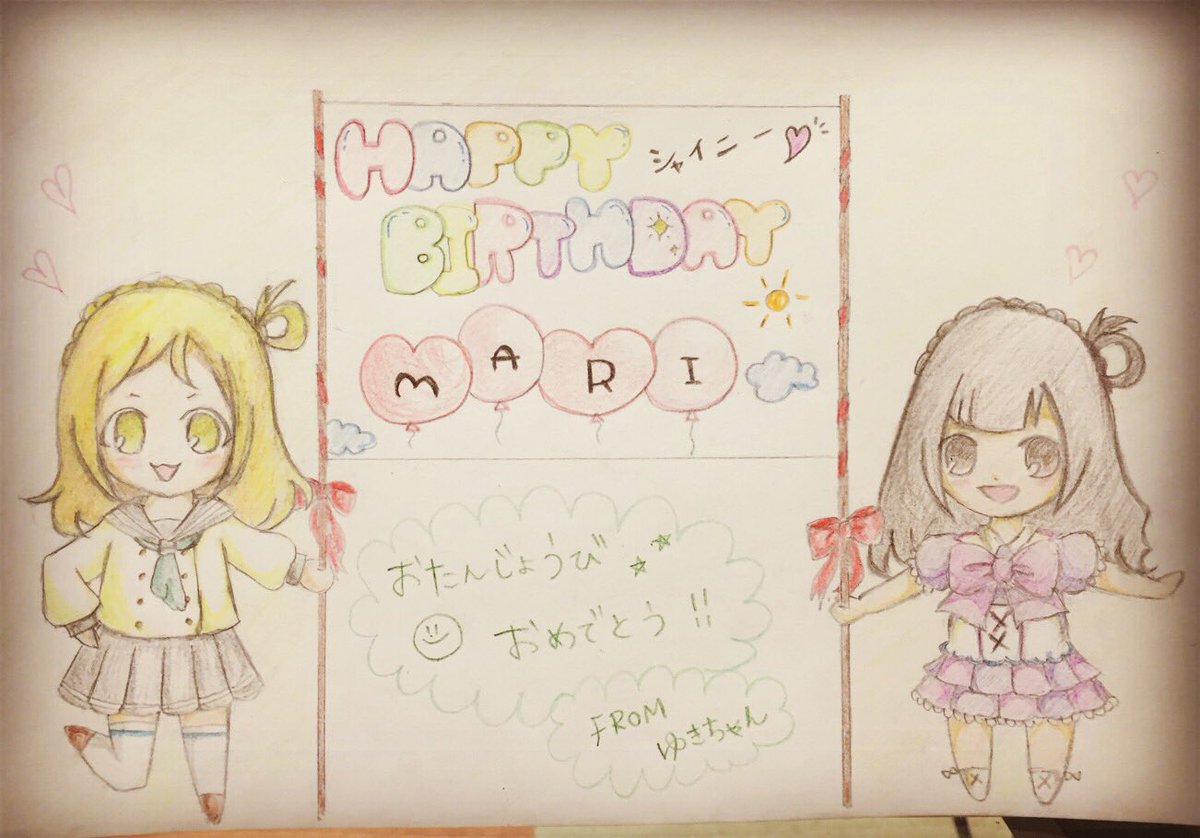 HAPPY シャイニー
BIRTHDAY
MARI
おたんじょうび
おめでとう!!
FROM
ゆきちゃん